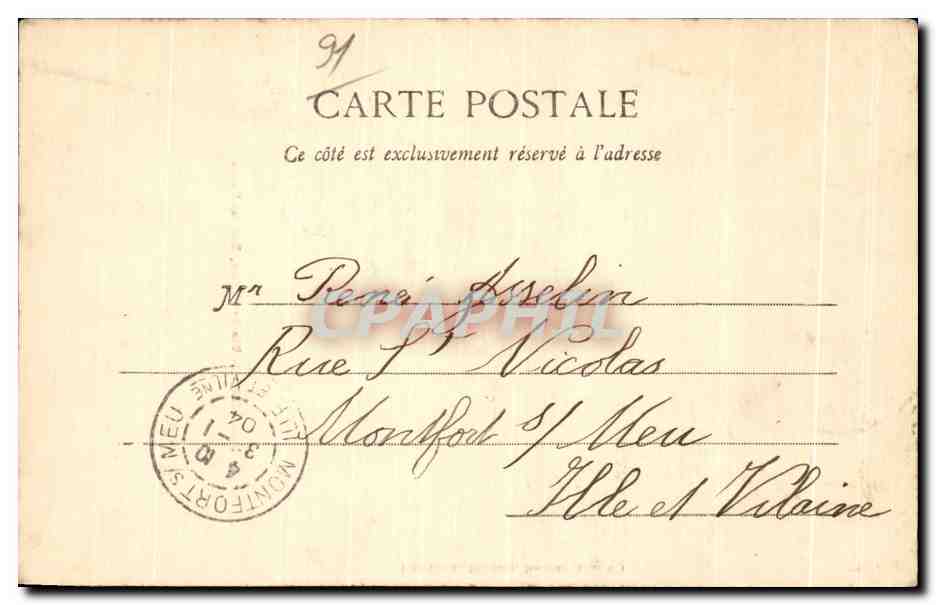 91
CARTE POSTALE
Ce côté est exclusivement réservé à l'adresse
Mr René Asselin
CPAPHIL
Rue St Nicolas
Montfort s/ Meu
Ille et Vilaine
MONTFORT S/ MEU
ILLE ET VILNE
3
04